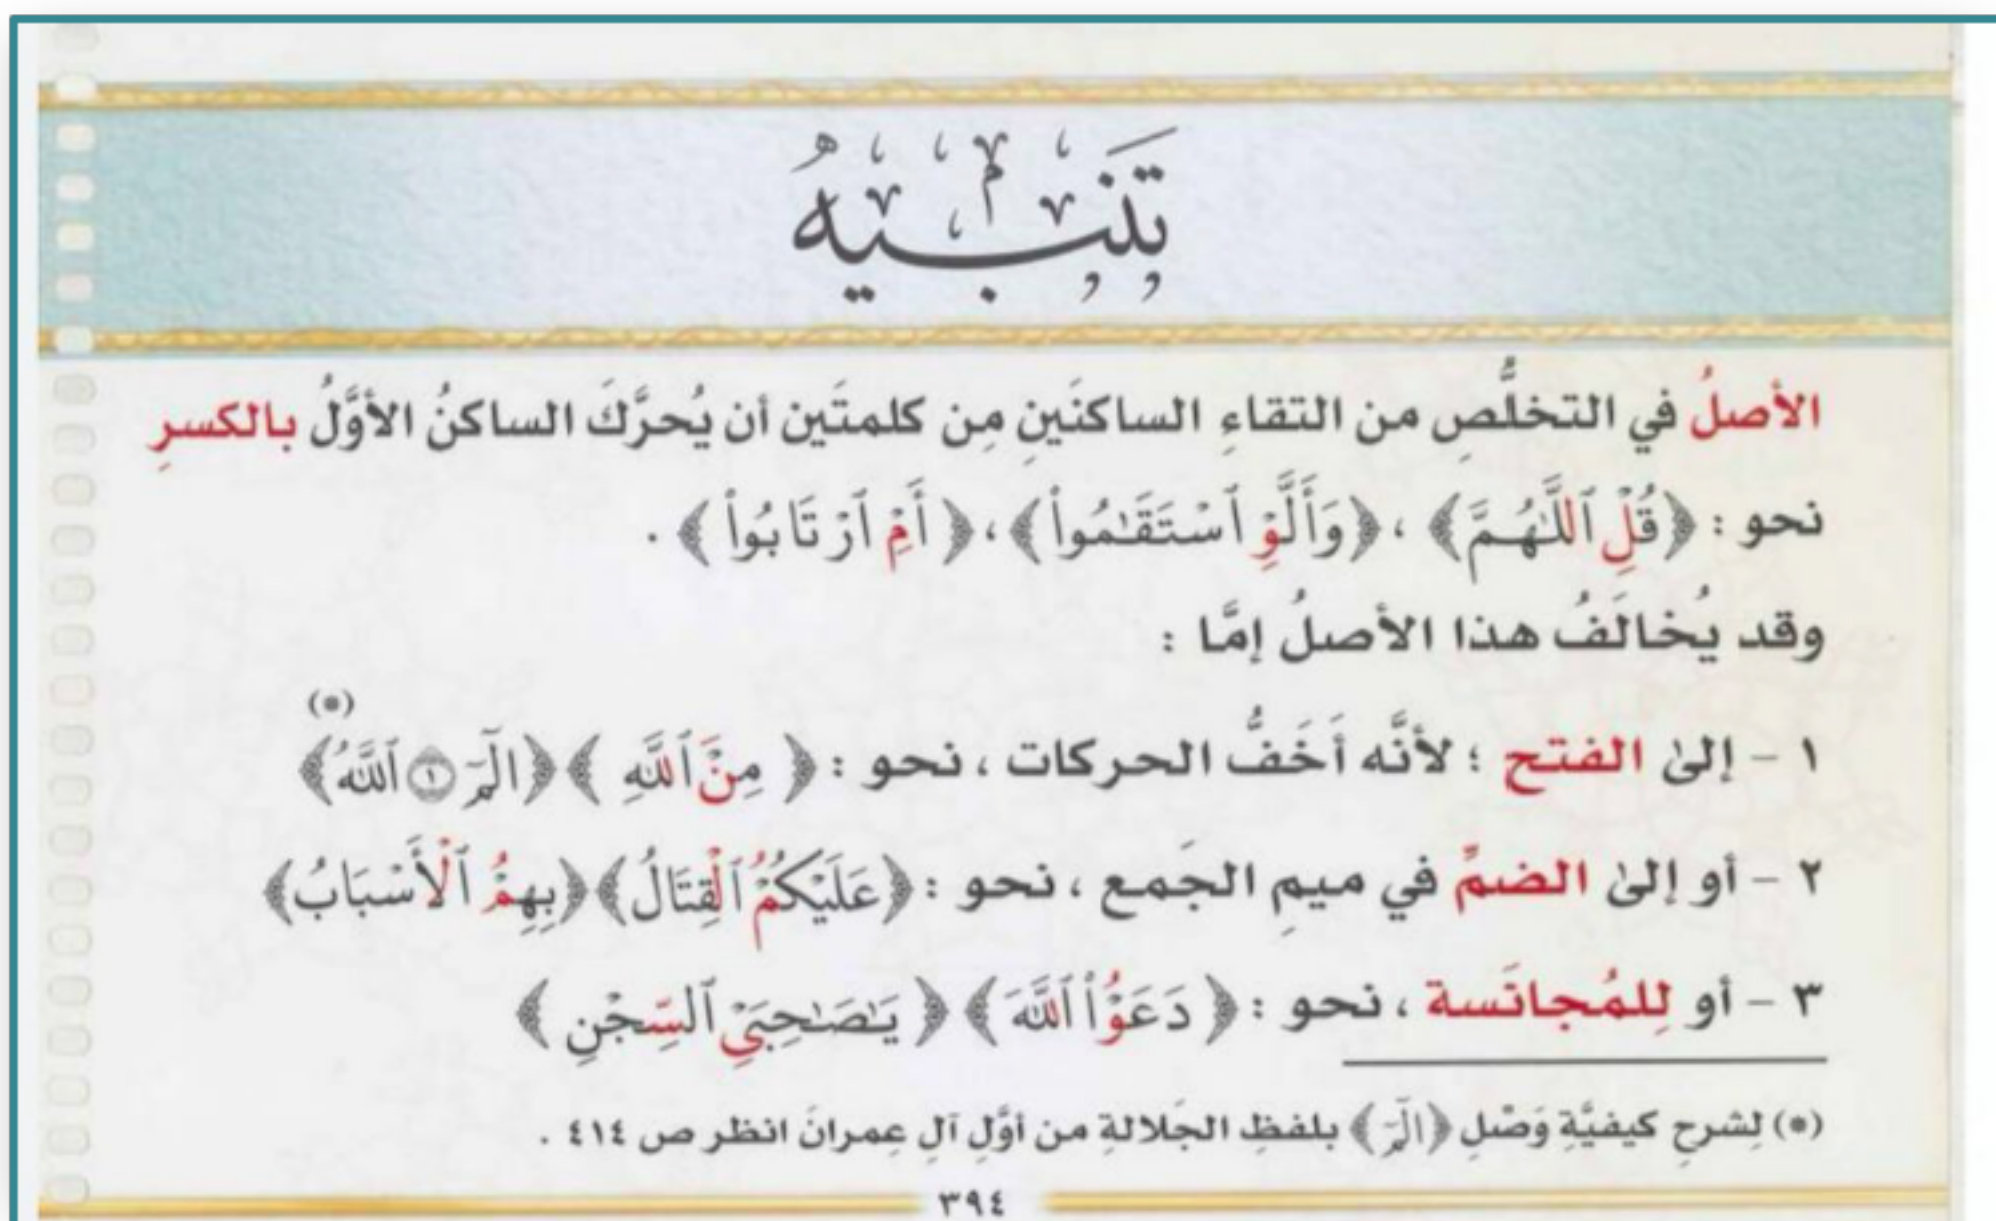 تَنْبِيهٌ
الأصلُ في التخلُّصِ من التقاءِ الساكنَينِ مِن كلمتَين أن يُحرَّكَ الساكنُ الأوَّلُ بالكسرِ
نحو : ﴿قُلِ ٱللَّهُمَّ﴾ ، ﴿وَأَلَّوِ ٱسْتَقَٰمُوا۟﴾ ، ﴿أَمِ ٱرْتَابُوٓا۟﴾ .
وقد يُخالَفُ هذا الأصلُ إمَّا :
١ - إلىٰ الفتح ؛ لأنَّه أخَفُّ الحركات ، نحو : ﴿مِنَ ٱللَّهِ﴾ ﴿الٓمٓ ١ ٱللَّهُ﴾ (*)
٢ - أو إلىٰ الضمِّ في ميمِ الجَمع ، نحو : ﴿عَلَيْكُمُ ٱلْقِتَالُ﴾ ﴿بِهِمُ ٱلْأَسْبَابُ﴾
٣ - أو لِلمُجانَسة ، نحو : ﴿دَعَوُا۟ ٱللَّهَ﴾ ﴿يَٰصَٰحِبَيِ ٱلسِّجْنِ﴾
(*) لِشرحِ كيفيَّةِ وَصْلِ ﴿الٓمٓ﴾ بلفظِ الجَلالةِ من أوَّلِ آلِ عِمرانَ انظر ص ٤١٤ .
٣٩٤